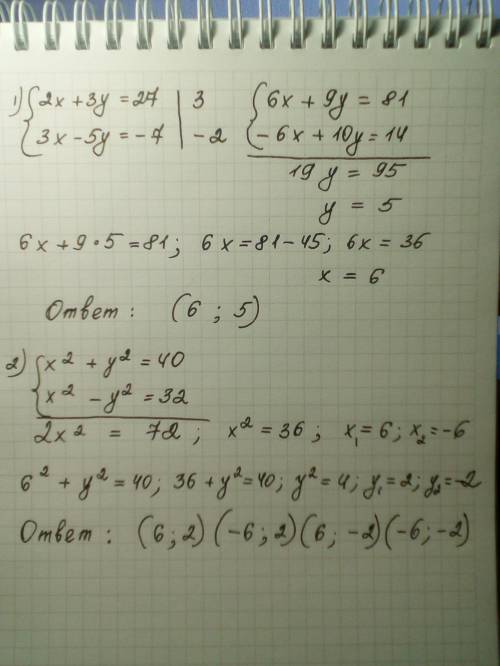 1) {2x + 3y = 27 | 3 {6x + 9y = 81
3x - 5y = -7 | -2 -6x + 10y = 14
19y = 95
y = 5
6x + 9·5 = 81; 6x = 81 - 45; 6x = 36
x = 6
Ответ: (6; 5)
2) {x² + y² = 40
x² - y² = 32
2x² = 72; x² = 36; x₁ = 6; x₂ = -6
6² + y² = 40; 36 + y² = 40; y² = 4; y₁ = 2; y₂ = -2
Ответ: (6; 2) (-6; 2) (6; -2) (-6; -2)